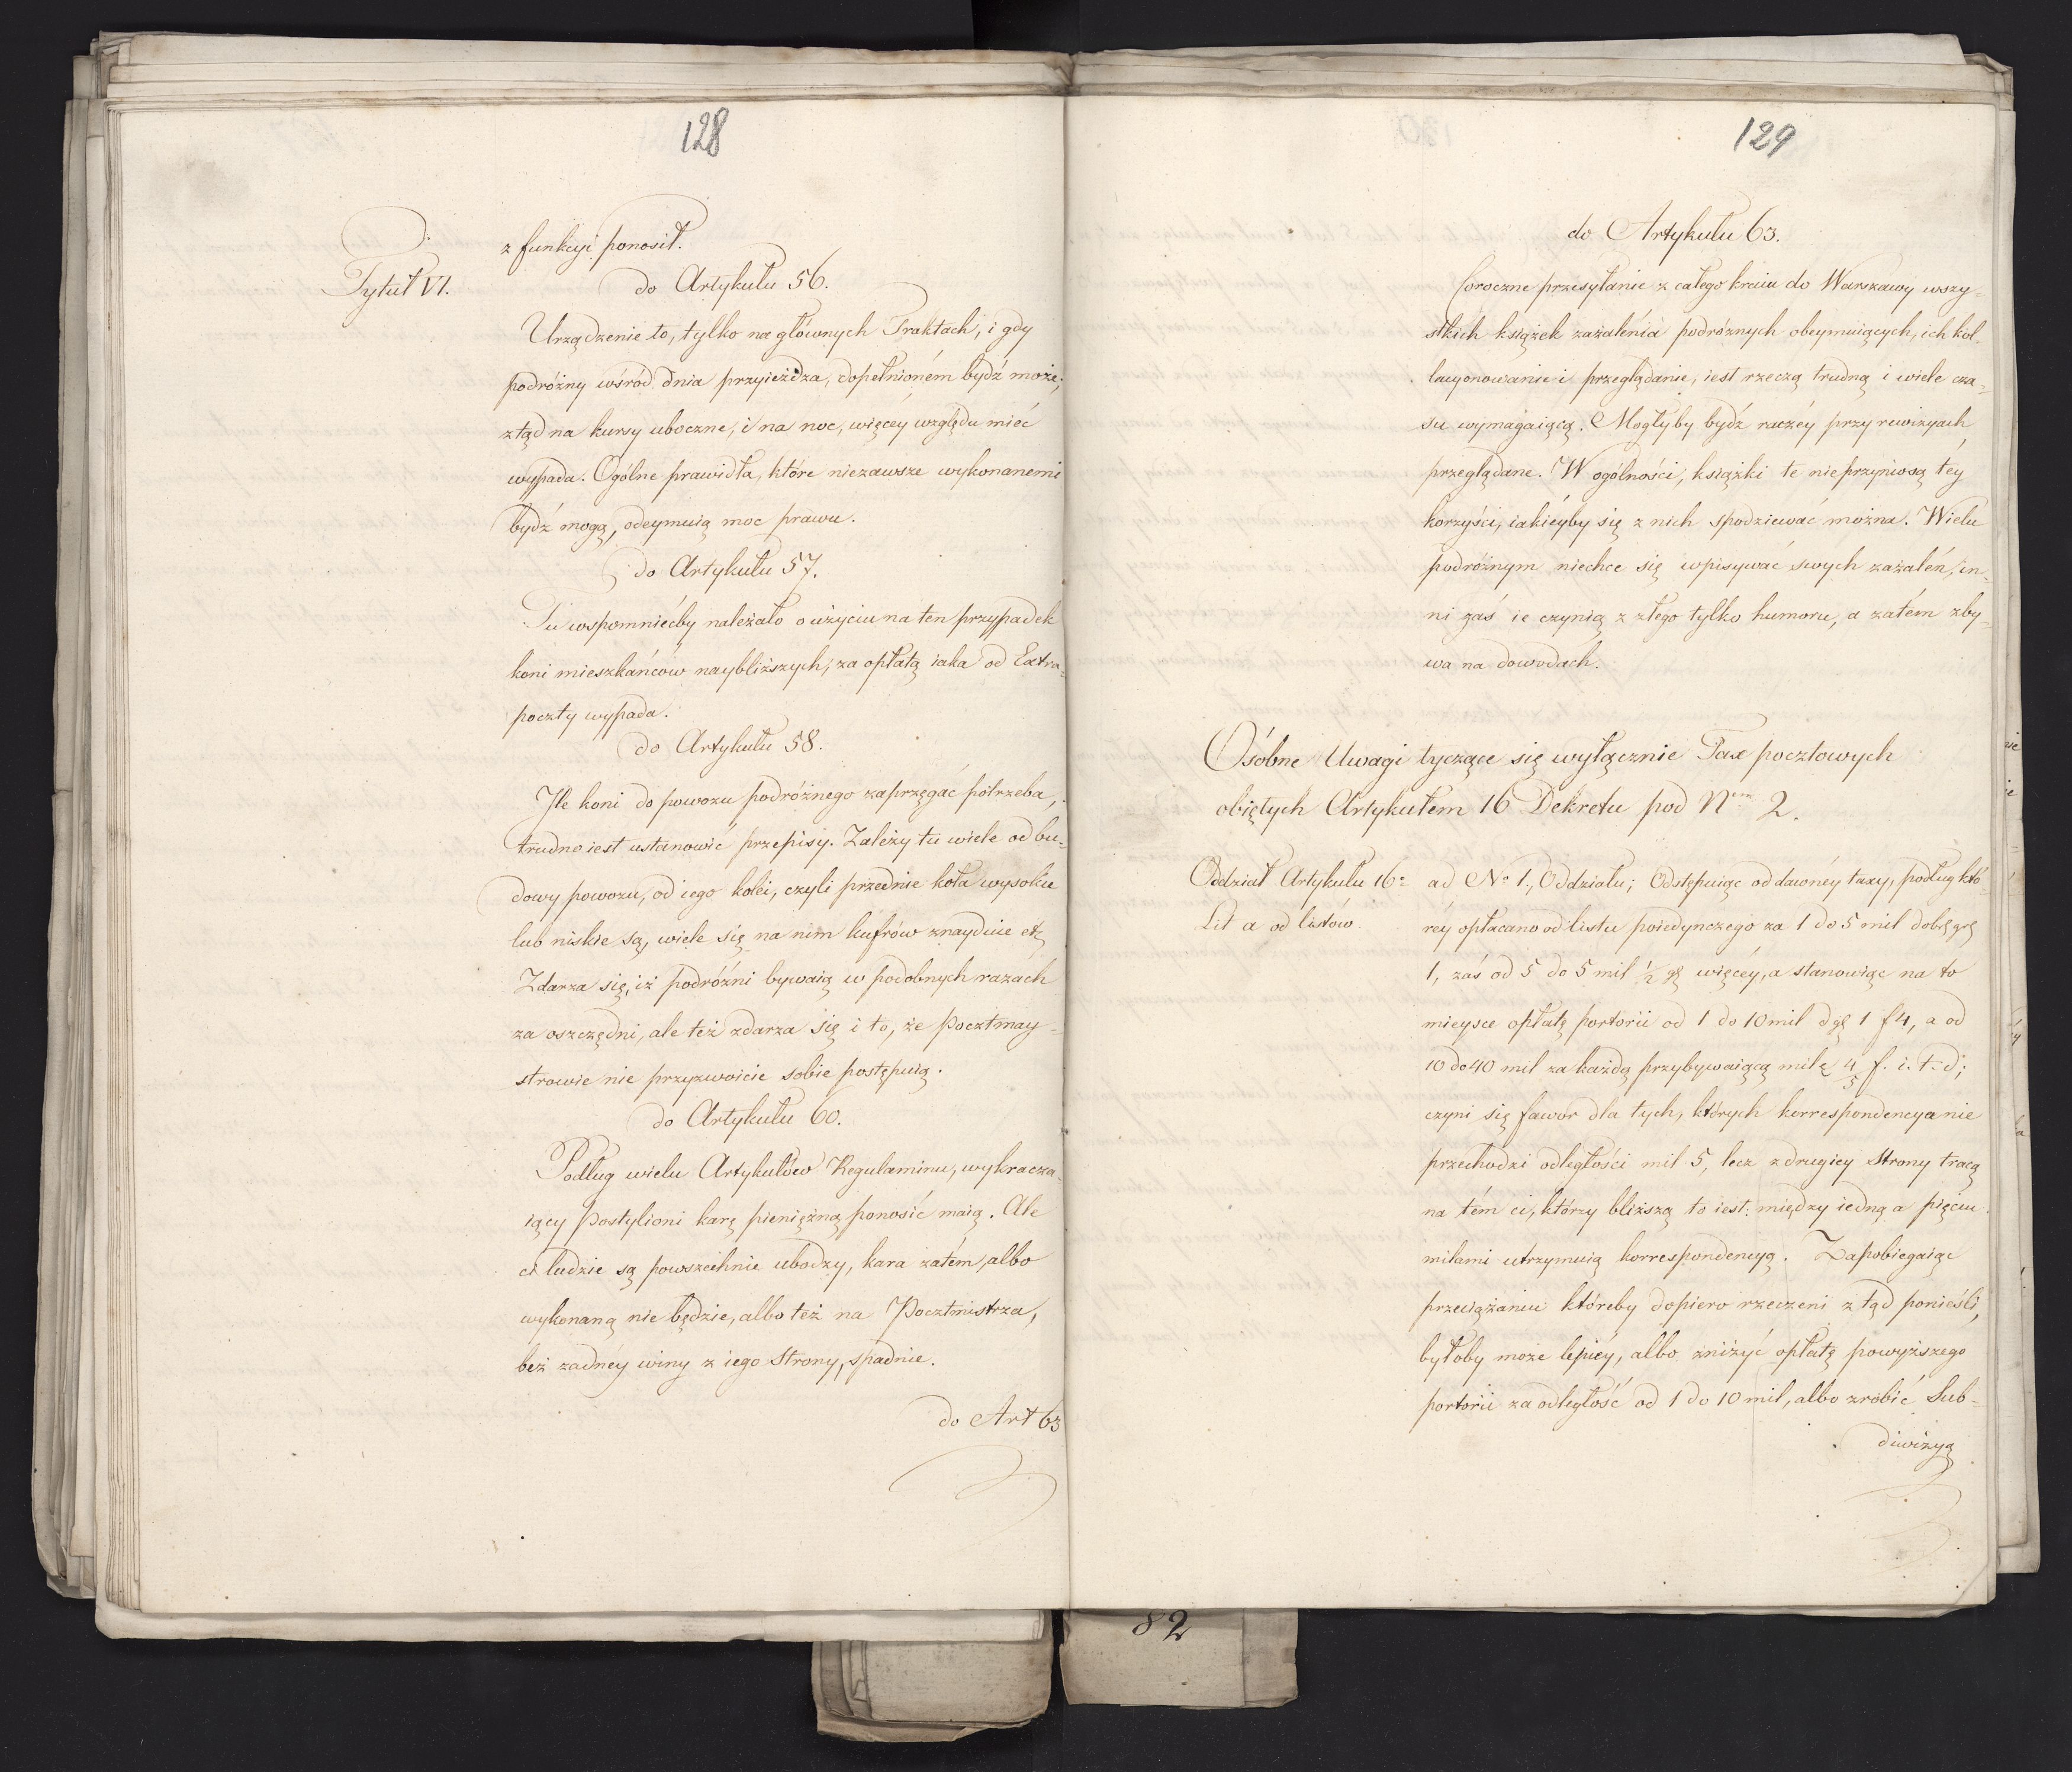 128
z funkcyi ponosił.
Tytuł VI.
do Artykułu 56.
Urządzenie to, tylko na głównych Traktach, i gdy
podróżny wśród dnia przyieżdza, dopełnioném bydź może;
ztąd na kursy uboczne, i na noc, więcéy względu mieć
wypada. Ogólne prawidła, które niezawsze wykonanemi
bydź mogą, odeymuią moc prawu.
do Artykułu 57.
Tu wspomniećby należało o użyciu na ten przypadek
koni mieszkańców naybliższych, za opłatą iaka od Extra-
poczty wypada.
do Artykułu 58.
Jle koni do powozu podróżnego zaprzęgać potrzeba,
trudno iest ustanowić przepisy. Zależy tu wiele od bu-
dowy powozu, od iego kolei, czyli przednie koła wysokie
lub niskie są, wiele się na nim kufrów znayduie etc
Zdarza się, iż podróżni bywaią w podobnych razach
za oszczędni, ale też zdarza się i to, że Pocztmay-
strowie nie przyzwoicie sobie postępuią.
do Artykułu 60.
Podług wielu Artykułów Regulaminu, wykracza-
iący Postylioni karę pieniężną ponosić maią. Ale
ci ludzie są powszechnie ubodzy, kara zatém, albo
wykonaną nie będzie, albo też na Pocztmistrza,
bez żadnéy winy z iego Strony, spadnie.
do Art 63
129
do Artykułu 63.
Coroczne przesyłanie z całego kraiu do Warszawy wszy-
stkich książek zażalenia podróżnych obeymuiących, ich kol-
lacyonowanie i przeglądanie, iest rzeczą trudną i wiele cza-
su wymagaiącą. Mogłyby bydź raczéy przy rewizyach
przeglądane. W ogólności, książki te nieprzyniosą téy
korzyści, iakiéyby się z nich spodziewać można. Wielu
podróżnym niechce się wpisywać swych zażaleń, in-
ni zaś ie czynią z złego tylko humoru, a zatém zby-
wa na dowodach.
Osóbne Uwagi tyczące się wyłącznie Tax pocztowych
obiętych Artykułem 16 Dekretu pod Nem 2.
Oddział Artykułu 16o
Lit a od listów
ad No 1, Oddziału; Odstępuiąc od dawnéy taxy, podług któ-
réy opłacano od listu poiedynczego za 1 do 5 mil dobr gr
1, zaś od 5 do 5 mil 1/2 gr więcéy, a stanowiąc na to
mieysce opłatę portorii od 1 do 10 mil d gr 1 f 4, a od
10 do 40 mil za każdą przybywaiącą milę 4/5 f. i. t. d;
czyni się fawor dla tych, których korrespondencya nie
przechodzi odległości mil 5, lecz z drugiey Strony tracą
na tém ci, którzy bliższą to iest: między iedną a pięciu
milami utrzymuią korrespondencyą. Zapobiegaiąc
przeciążaniu któreby dopiero rzeczeni z tąd ponieśli,
byłoby może lepiéy, albo zniżyć opłatę powyższego
portorii za odległość od 1 do 10 mil, albo zrobić Sub-
diwizyą
82